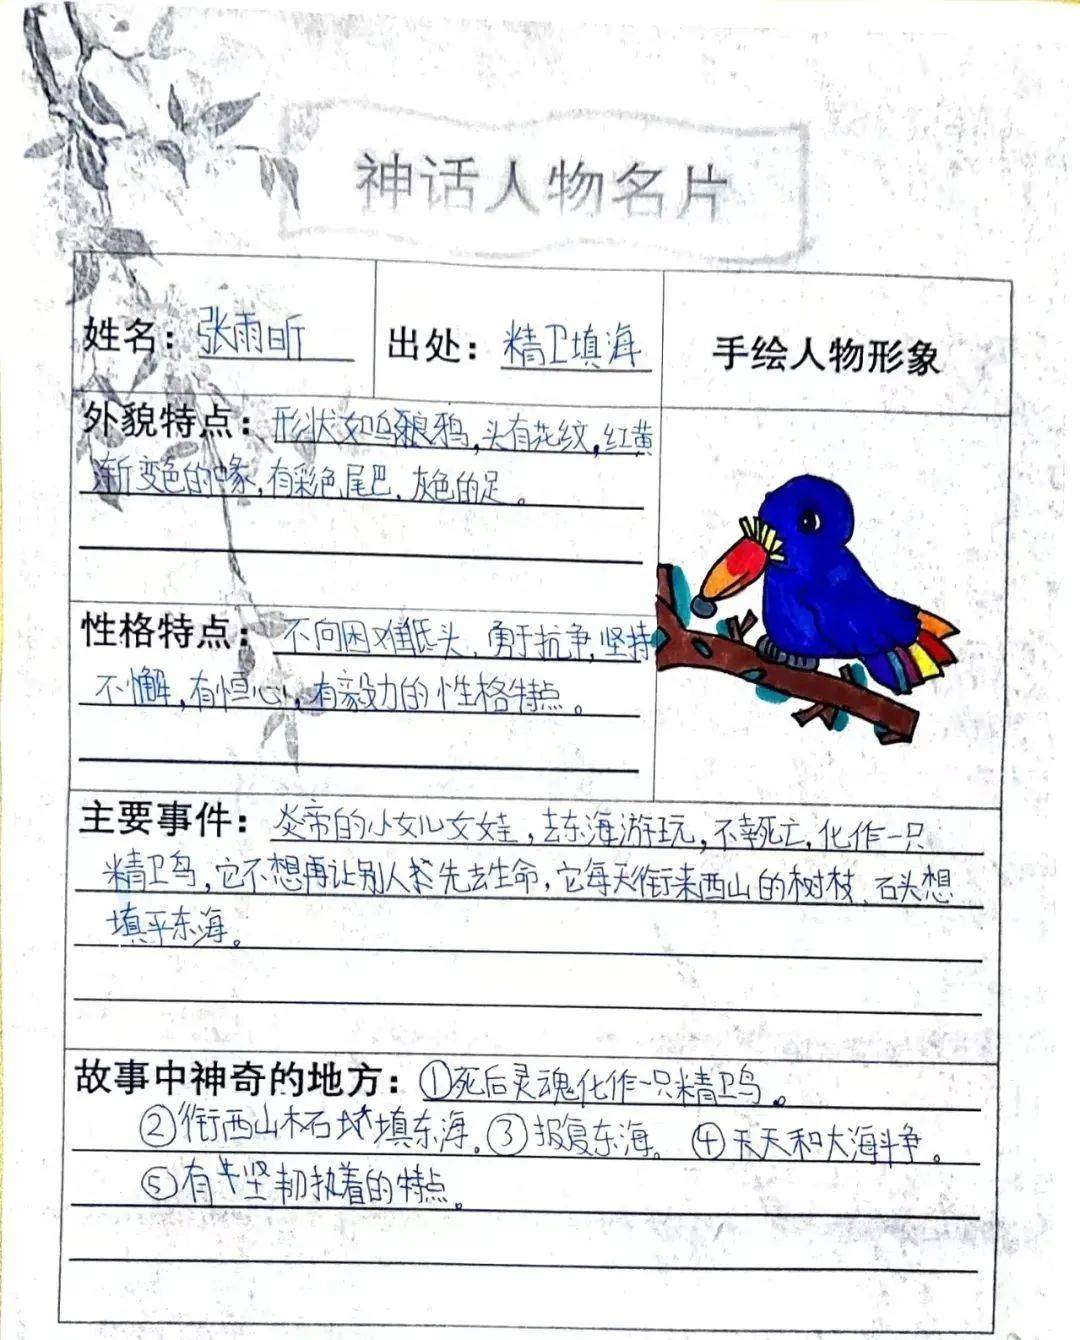 神话人物名片
姓名：张雨昕
出处：精卫填海
手绘人物形象
外貌特点：形状如乌鸦，头有花纹，红黄
渐变色的喙，有彩色尾巴，灰色的足。
性格特点：不向困难低头，勇于抗争，坚持
不懈，有恒心，有毅力的性格特点。
主要事件：炎帝的小女儿女娃，去东海游玩，不幸死亡，化作一只
精卫鸟，它不想再让别人失去生命，它每天衔来西山的树枝、石头想
填平东海。
故事中神奇的地方：①死后灵魂化作一只精卫鸟。
②衔西山木石填东海。③报复东海。④天天和大海斗争。
⑤有坚韧执着的特点。